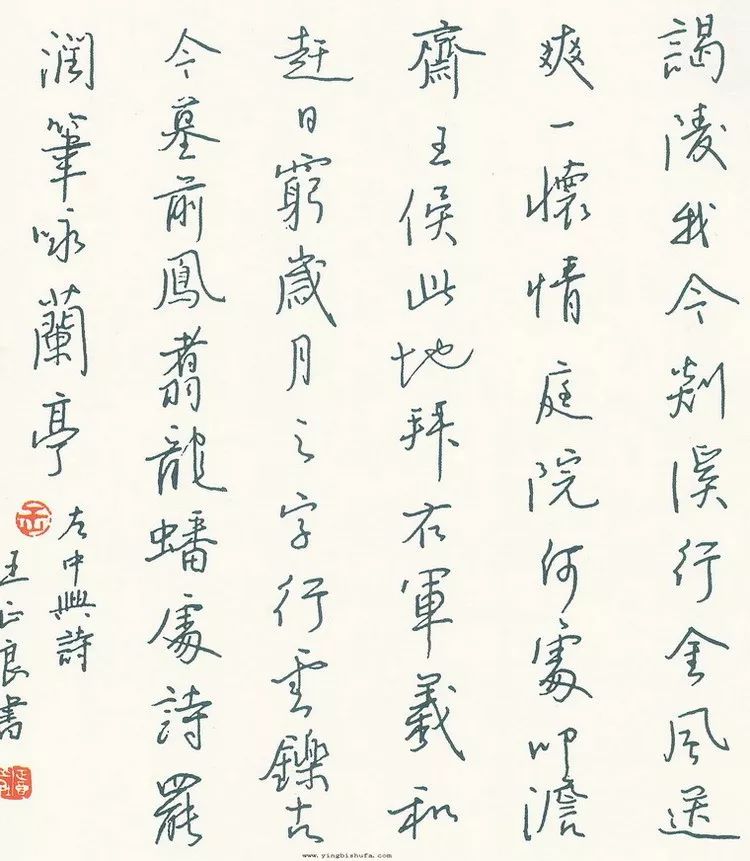 謁陵我今剡溪行金風送
爽一懷情庭院何處叩澹
齋王侯此地拜右軍羲和
赶日窮歲月之字行雲鑠古
今墓前鳳翥龍蟠處詩罷
潤筆咏蘭亭
左中興詩
王正良書
www.yingbishufa.com